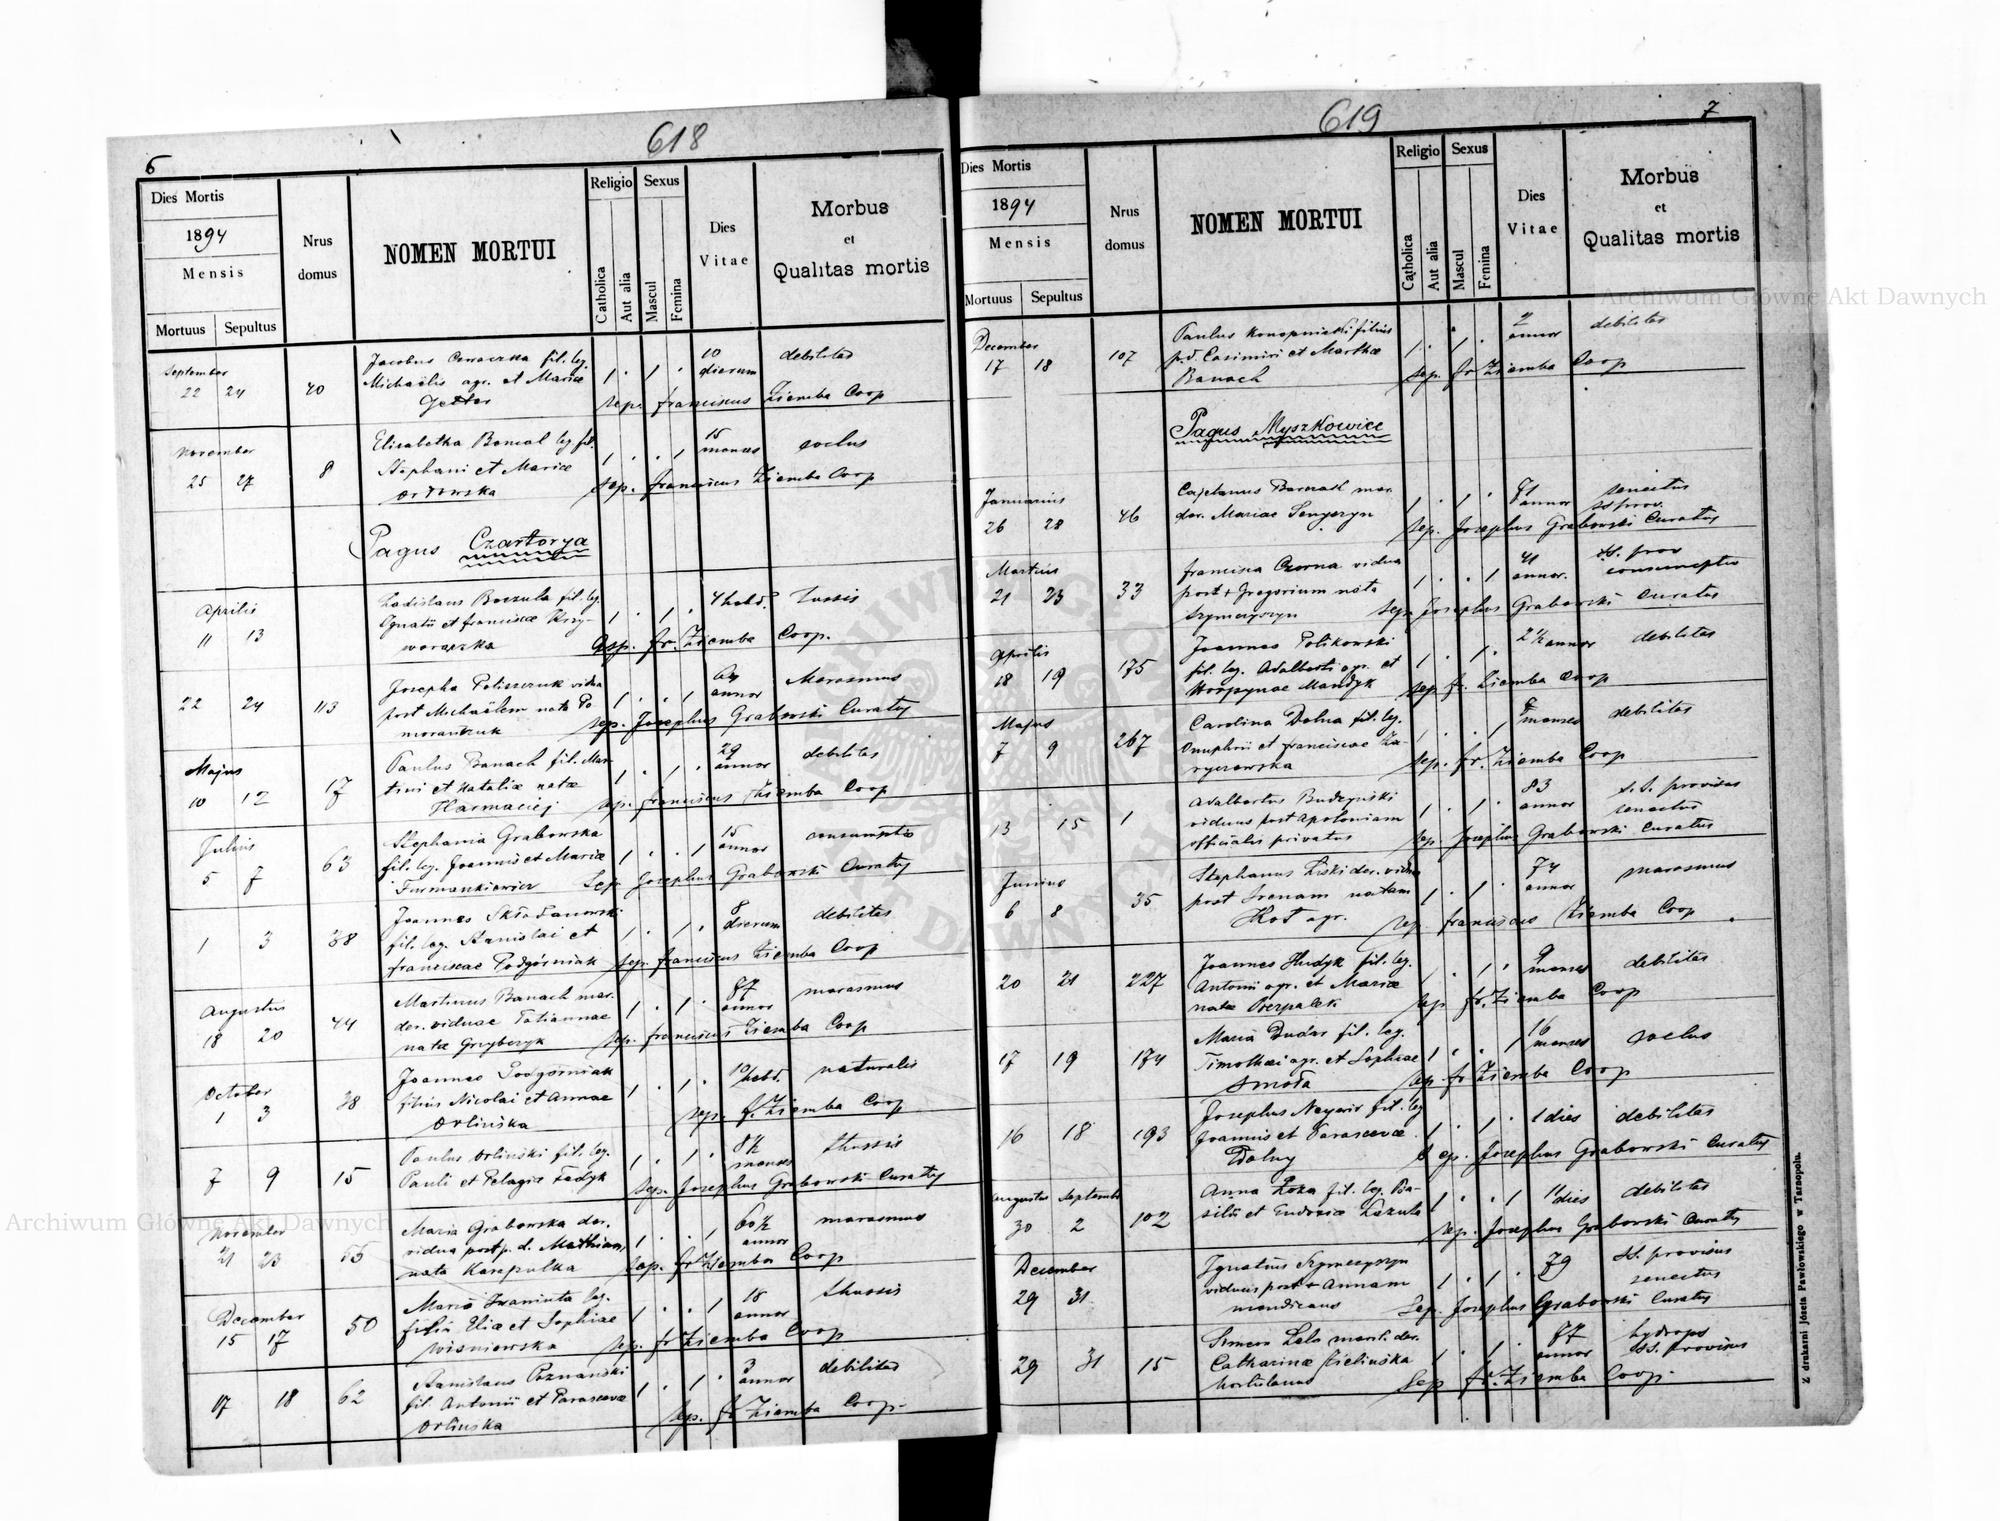 6
618
Dies Mortis
1894
Mensis
Mortuus Sepultus
Nrus domus
NOMEN MORTUI
Religio
Catholica
Aut alia
Sexus
Mascul
Femina
Dies Vitae
Morbus
et
Qualitas mortis
September
22 24 40 Jacobus fil. leg. 1 . 1 . 10 dierum debilitas
Michaëlis agr. et Mariæ
sep. franciscus Ziemba Coop
November
25 27 8 Elisabetha leg. fil. 1 . . 1 15 menses
Stephani et Mariæ
Orłowska sep. franciscus Ziemba Coop
Pagus Czartorya
Aprilis
11 13 Ladislaus Boczula fil. leg. 1 . 1 . 4 hebd. Tussis
Ignatii et franciscæ Krzy-
woraczka sep. fr. Ziemba Coop.
22 24 113 Josepha vidua 1 . . 1 64 annor Marasmus
post Michaëlem nata
sep. Josephus Grabowski Curatus
Majus
10 12 17 Paulus Banach fil. Mar- 1 . 1 . 29 annor debilitas
tini et Nataliæ natæ
Harmaciej sep. franciscus Ziemba Coop
Julius
5 7 63 Stephania Grabowska 1 . . 1 15 annor consumptio
fil. leg. Joannis et Mariæ
Furmankiewicz Sep. Josephus Grabowski Curatus
1 3 38 Joannes Składanowski 1 . 1 . 8 dierum debilitas
fil. leg. Stanislai et
franciscae Podgórniak sep. franciscus Ziemba Coop
Augustus
18 20 44 Martinus Banach mar. 1 . 1 . 87 annor marasmus
der. viduae Tatiannae
natæ Grzybczyk sep. franciscus Ziemba Coop
October
1 3 38 Joannes Podgórniak 1 . 1 . 10 hebd. naturalis
filius Nicolai et Annae
Orlińska sep. f. Ziemba Coop
7 9 15 Paulus Orliński fil. leg. 1 . 1 . 8½ menses thussis
Pauli et Pelagiæ Fadyk sep. Josephus Grabowski Curatus
November
21 23 55 Maria Grabowska der. 1 . . 1 60½ annor marasmus
vidua post p. d. Mathiam,
nata Karapulka sep. fr Ziemba Coop
December
15 17 50 Maria Iwaniuta leg. 1 . . 1 18 annor thussis
filia Eliæ et Sophiae
Wiśniewska sep. fr Ziemba Coop
17 18 62 Stanislaus Poznański 1 . 1 . 3 annor debilitas
fil. Antonii et Parascevæ
Orlińska sep. fr Ziemba Coop.
619
7
Dies Mortis
1894
Mensis
Mortuus Sepultus
Nrus domus
NOMEN MORTUI
Religio
Catholica
Aut alia
Sexus
Mascul
Femina
Dies Vitae
Morbus
et
Qualitas mortis
December
17 18 107 Paulus Konopnicki filius 1 . 1 . 2 annor debilitas
p.d. Casimiri et Marthæ
Banach sep. fr Ziemba Coop
Pagus Myszkowice
Januarius
26 28 46 Cajetanus mar. 1 . 1 . 71 annor senectus
der. Mariae Senyszyn ss prov.
sep. Josephus Grabowski Curatus
Martius
21 23 33 francisca Czorna vidua 1 . . 1 41 annor. ss. prov
post + Gregorium nata consumeptio
Szymczyszyn sep. Josephus Grabowski Curatus
Aprilis
18 19 175 Joannes Polikowski 1 . 1 . 2½ annor debilitas
fil. leg. Adalberti agr. et
Mandyk sep. fr. Ziemba Coop
Majus
7 9 267 Carolina Dolna fil. leg. 1 . . 1 menses debilitas
Onuphrii et franciscae Za-
ryczowska sep. fr. Ziemba Coop
13 15 1 Adalbertus Budzyński 1 . 1 . 83 annor s. s. provisus
viduus post Apoloniam senectus
officialis privatus sep. Josephus Grabowski Curatus
Junius
6 8 35 Stephanus Liski der. vidua 1 . 1 . 74 annor marasmus
post Irenam natam
Kot agr. sep. franciscus Ziemba Coop
20 21 227 Joannes Hudyk fil. leg. 1 . 1 . 9 menses debilitas
Antonii agr. et Mariæ
natæ sep. fr. Ziemba Coop
17 19 174 Maria Dudar fil. leg. 1 . . 1 16 menses
Timothæi agr. et Sophiae
Smoła sep. fr Ziemba Coop
16 18 193 Josephus fil. leg 1 . 1 . 1 dies debilitas
Joannis et Parascevæ
Dolny Sep. Josephus Grabowski Curatus
Augustus September
30 2 102 Anna Łoza fil. leg. Ba- 1 . . 1 11 dies debilitas
silii et Eudoxiæ sep. Josephus Grabowski Curatus
December
29 31 Ignatius Szymczyszyn 1 . 1 . 79 ss. provisus
viduus post + Annam senectus
mendicans Sep. Josephus Grabowski Curatus
29 31 15 Simeon Lals marit. der. 1 . 1 . 87 annor hydrops
Catharinæ Zielińska ss. provisus
hortulanus Sep fr. Ziemba Coop.
Z drukarni Józefa Pawłowskiego w Tarnopolu.
Archiwum Główne Akt Dawnych
Archiwum Główne Akt Dawnych